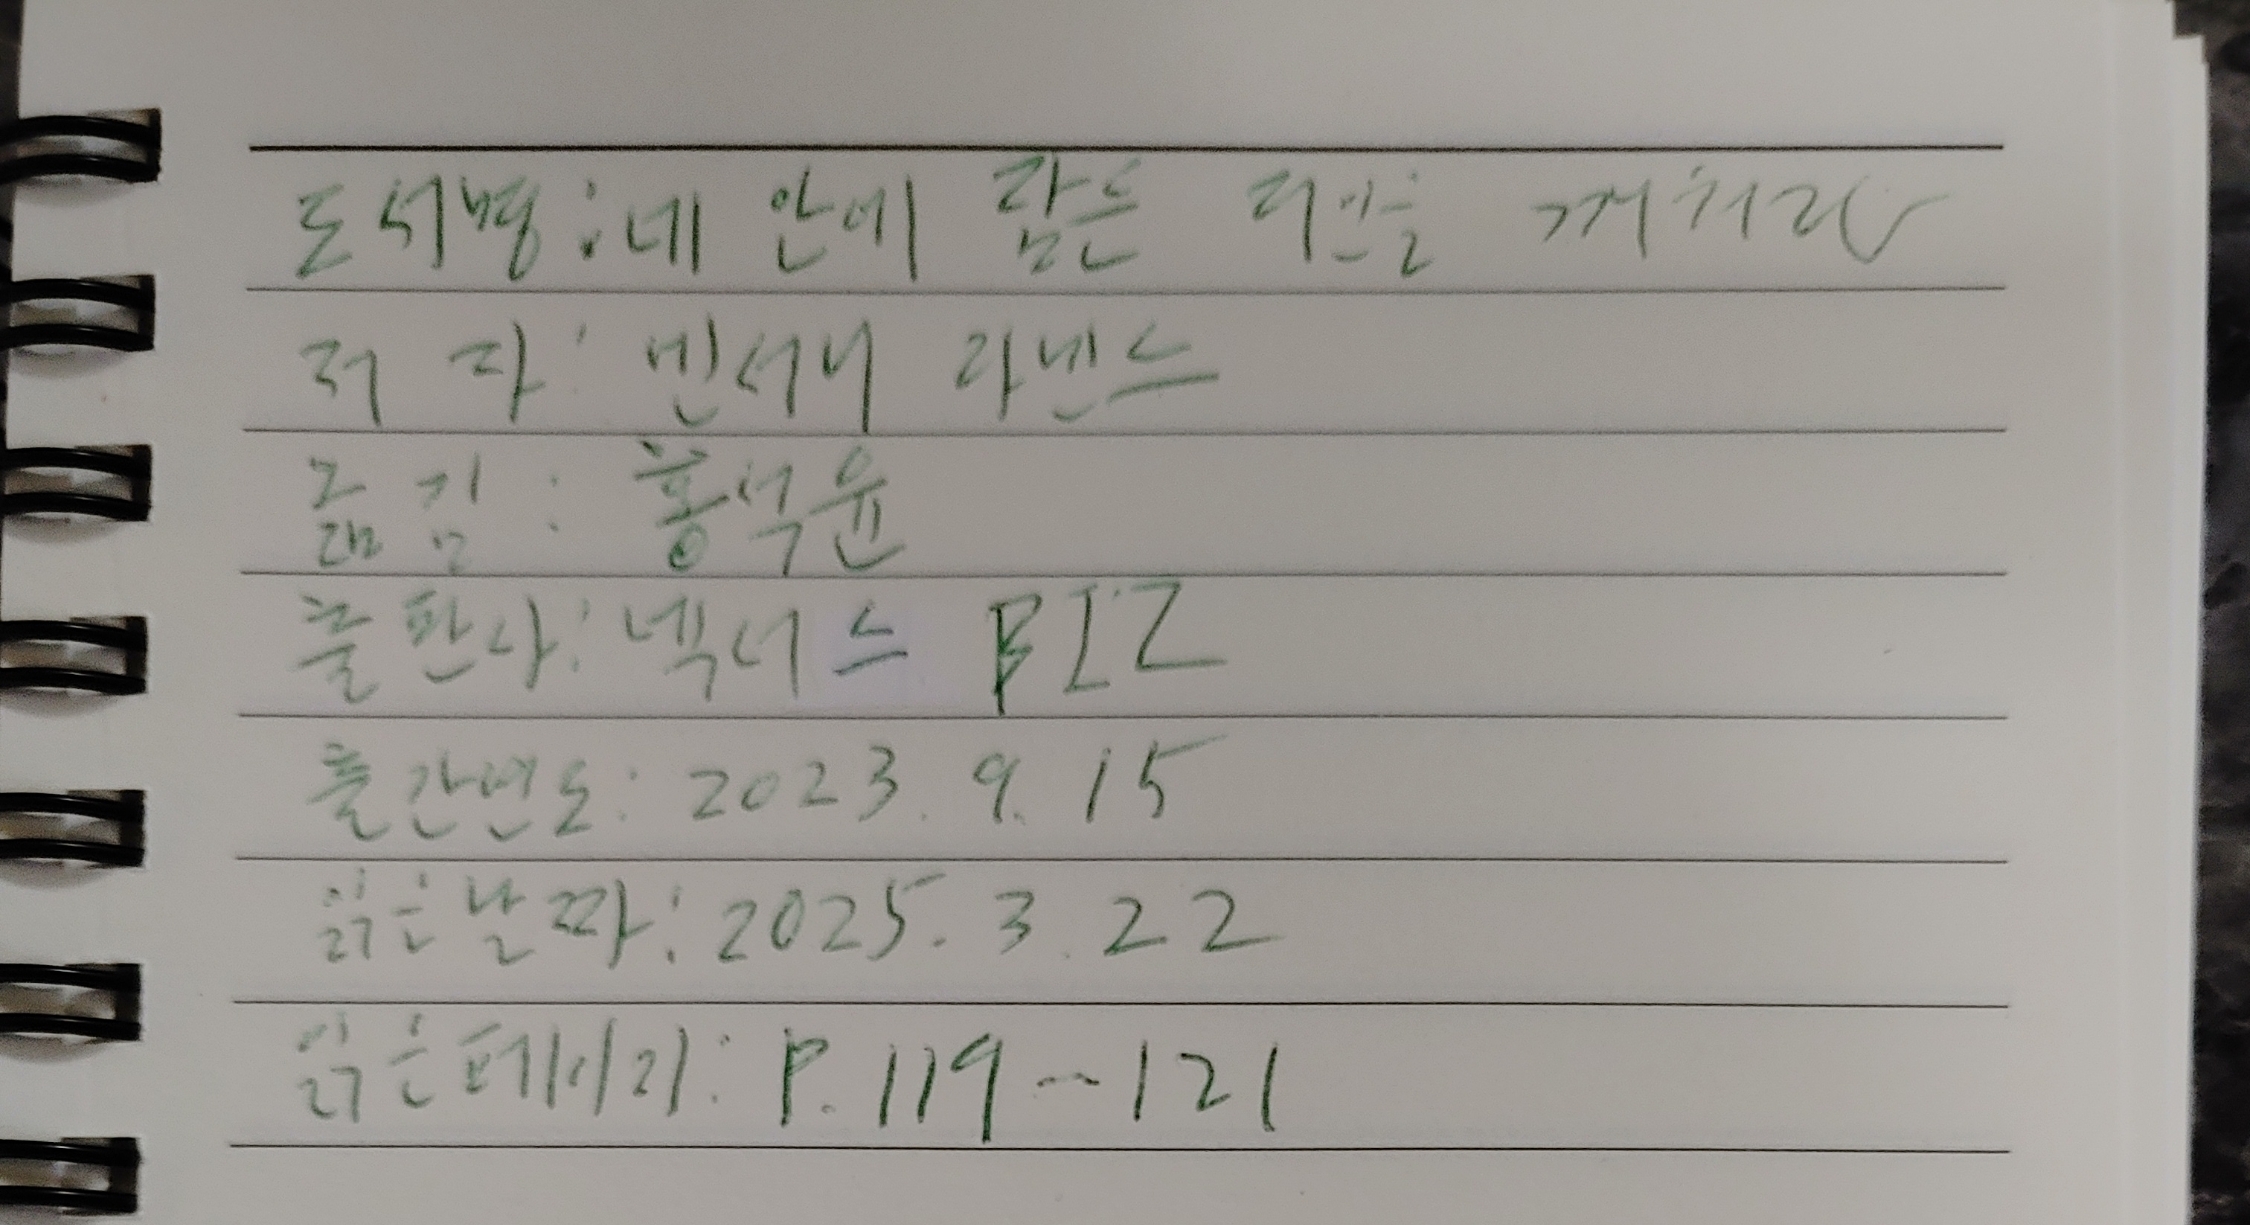 도서명: 네 안에 잠든 거인을 깨워라
저 자: 빈서니 라벤스
옮김: 홍석윤
출판사: 넥서스 BIZ
출간년도: 2023. 9. 15
읽은날짜: 2025. 3. 22
읽은페이지: P. 119~121